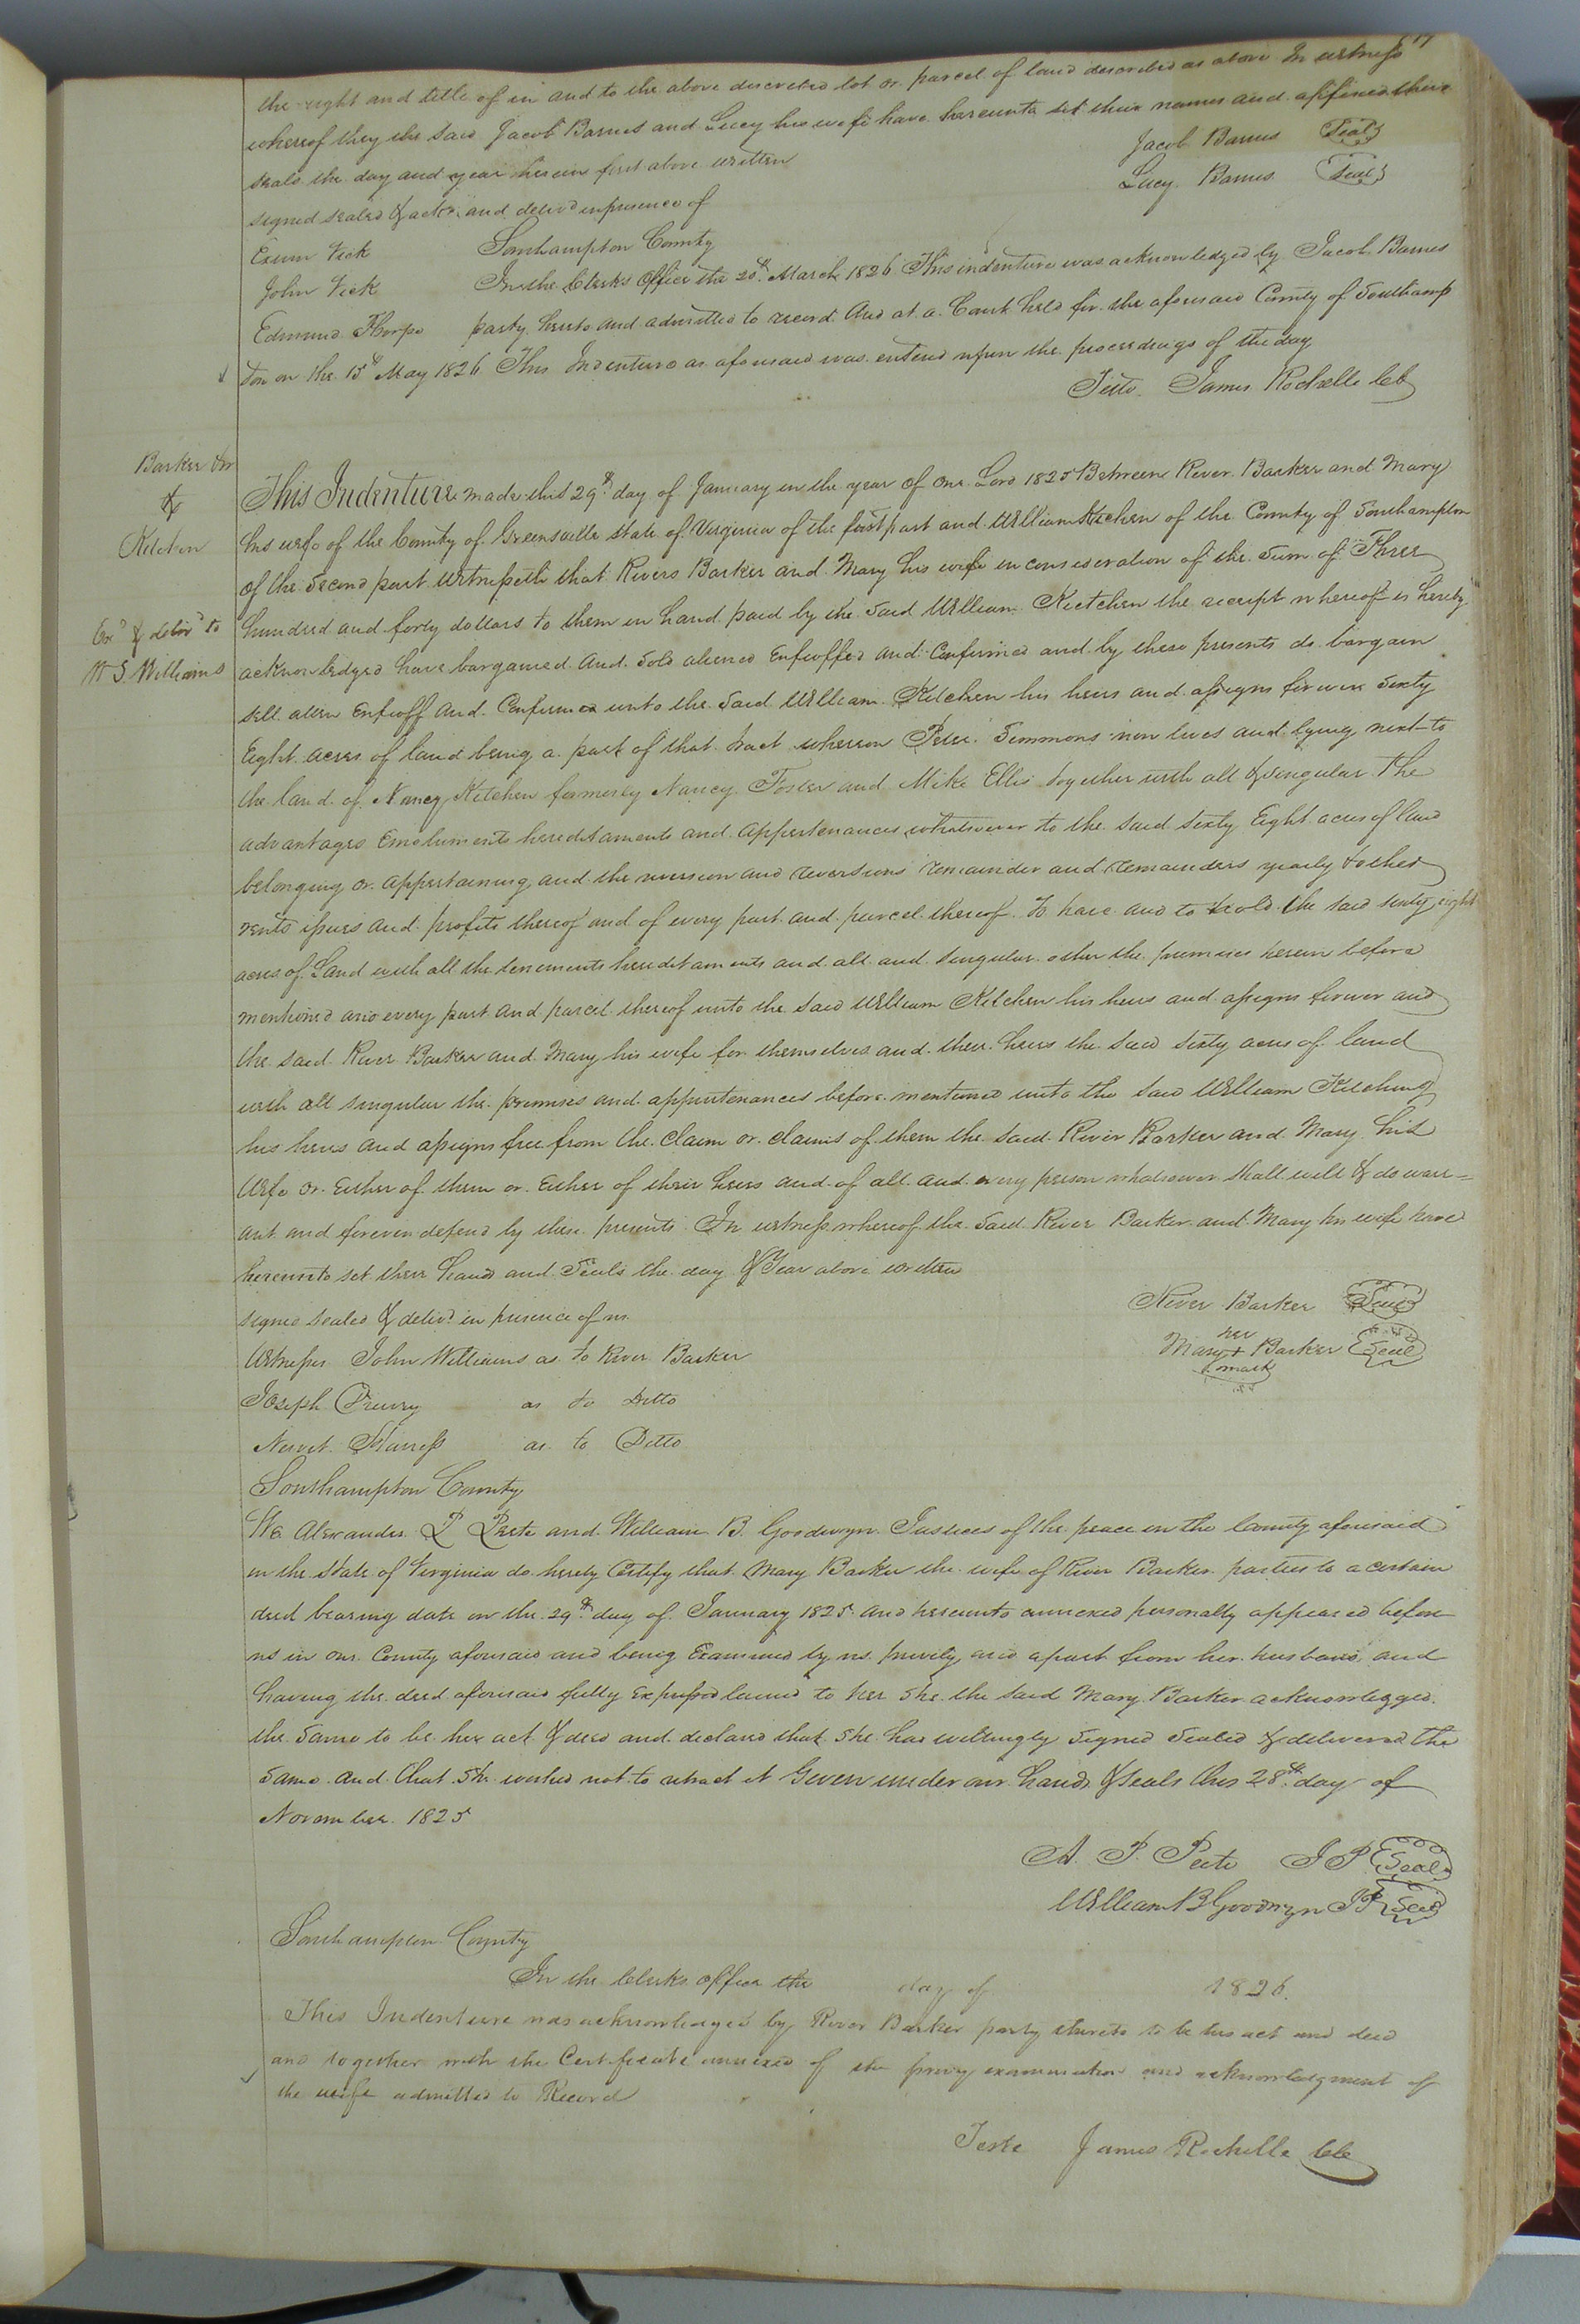 the right and title of in and to the above described lot or parcel of land described as above In witness
whereof they the said Jacob Barnes and Lucy his wife have hereunto set their names and affixed their
seals the day and year herein first above written
Jacob Barnes Seal
Lucy Barnes Seal
signed sealed & ackd and delivd in presence of
Exum Vick
John Vick
Edmund Thorpe
Southampton County
In the Clerks Office the 20th March 1826 This indenture was acknowledged by Jacob Barnes
party hereto and admitted to record. And at a Court held for the aforesaid County of Southamp
ton on the 15th May 1826 This Indenture as aforesaid was entered upon the proceedings of the day
Teste. James Rochelle CC
Barker &
&
Kitchen
Exd & delivd to
W S. Williams
This Indenture made this 29th day of January in the year of our Lord 1825 Between River Barker and Mary
his wife of the County of Greensville State of Virginia of the first part and William Kitchen of the County of Southampton
of the Second part Witnesseth that Rivers Barker and Mary his wife in consideration of the Sum of Three
hundred and forty dollars to them in hand paid by the Said William Kietchen the receipt whereof is hereby
acknowledged have bargained And Sold aliened Enfeoffed and Confirmed and by these presents do bargain
sell alien Enfeoff and Confirmed unto the Said William Kitchen his heirs and assigns forever Sixty
Eight acres of land being a part of that tract whereon Simmons now lives and lying next to
the land of Nancy Kitchen formerly Nancy Foster and Mike Ellis together with all & singular The
advantages Emoluments hereditaments and Appurtenances whatsoever to the said sixty Eight acres of land
belonging or appertaining and the reversion and reversions remainder and remainders yearly & other
rents issues and profits thereof and of every part and parcel thereof To have and to hold the said sixty eight
acres of Land with all the tenements hereditaments and all and singular other the premises herein before
mentioned and every part and parcel thereof unto the said William Kitchen his heirs and assigns forever and
the said River Barker and Mary his wife for themselves and their heirs the said sixty acres of land
with all singular the premises and appurtenances before mentioned unto the said William Kitching
his heirs and assigns free from the Claim or claims of them the said River Barker and Mary his
Wife or Either of them or Either of their heirs and of all and every person whatsoever shall will & do warr=
ant and forever defend by these presents In witness whereof the said River Barker and Mary his wife have
hereunto set their hands and Seals the day & Year above written
signed sealed & delivd in presence of us
River Barker Seal
her
Mary + Barker Seal
mark
Witnesses John Williams as to River Barker
Joseph Drewry as to Ditto
Newit Harris as to Ditto
Southampton County
We Alexander P Peete and William B. Goodwyn Justices of the peace in the County aforesaid
in the State of Virginia do hereby Certify that Mary Barker the wife of River Barker parties to a certain
deed bearing date on the 29th day of January 1825 and hereunto annexed personally appeared before
us in our County aforesaid and being Examined by us privily and apart from her husband and
having the deed aforesaid fully to her she the said Mary Barker acknowledged
the same to be her act & deed and declared that she has willingly Signed Sealed & delivered the
Same And that She wished not to retract it Given under our hands & seals this 28th day of
November 1825
A. P. Peete J P Seal
William B Goodwyn JP Seal
Southampton County
In the Clerks office the day of 1826.
This Indenture was acknowledged by River Barker party thereto to be his act and deed
and together with the Certificate annexed of the privy examination and acknowledgment of
the wife admitted to Record
Teste James Rochelle CC